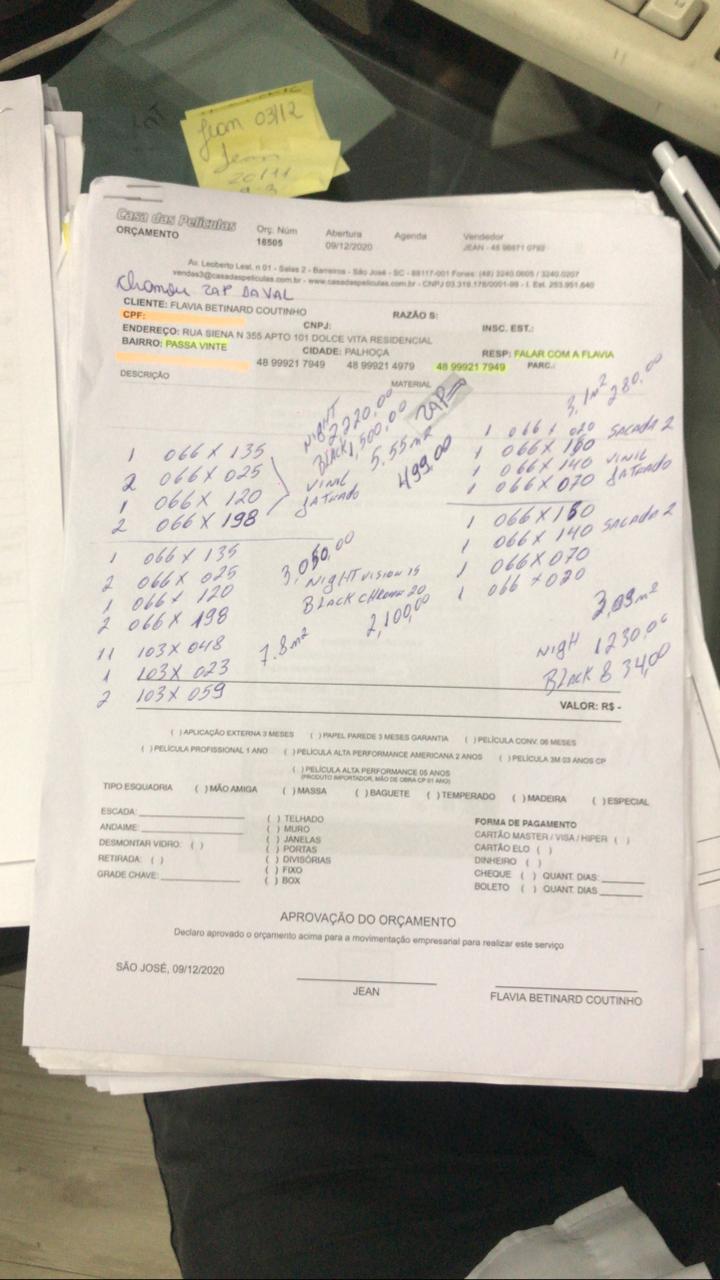 Jean 03/12
Jean
20/11
Casa das Películas
ORÇAMENTO
Orç. Núm
16505
Abertura
09/12/2020
Agenda
Vendedor
JEAN - 48 98871 0793
Av. Leoberto Leal, n 01 - Salas 2 - Barreiros - São José - SC - 88117-001 Fones: (48) 3240.0605 / 3240.0207
vendas3@casadaspeliculas.com.br - www.casadaspeliculas.com.br - CNPJ 03.319.178/0001-98 - I. Est. 253.951.640
Chamou ZAP DA VAL
CLIENTE: FLAVIA BETINARD COUTINHO RAZÃO S:
CPF: CNPJ: INSC. EST.:
ENDEREÇO: RUA SIENA N 355 APTO 101 DOLCE VITA RESIDENCIAL
BAIRRO: PASSA VINTE CIDADE: PALHOÇA RESP: FALAR COM A FLAVIA
48 99921 7949 48 99921 4979 48 99921 7949 PARC.:
DESCRIÇÃO MATERIAL
1 066 X 135
2 066 X 025
1 066 X 120
2 066 X 198
NIGHT 2,220,00
BLACK 1,500,00
VINIL 5.55 m²
JATEADO 499,00
ZAP
3,1 m² 280,00
1 066 X 020
1 066 X 160 SACADA 2
1 066 X 140 VINIL
1 066 X 070 JATEADO
1 066 X 135
2 066 X 025
1 066 X 120
2 066 X 198
11 103 X 048
1 103 X 023
2 103 X 059
3,050,00
NIGHT VISION 15
BLACK CHROME 20
7.8 m² 2,100,00
1 066 X 160
1 066 X 140 SACADA 2
1 066 X 070
1 066 X 020
3,09 m²
NIGH 1230,00
BLACK 834,00
VALOR: R$ -
( ) APLICAÇÃO EXTERNA 3 MESES ( ) PAPEL PAREDE 3 MESES GARANTIA ( ) PELÍCULA CONV. 06 MESES
( ) PELÍCULA PROFISSIONAL 1 ANO ( ) PELÍCULA ALTA PERFORMANCE AMERICANA 2 ANOS ( ) PELÍCULA 3M 03 ANOS CP
( ) PELÍCULA ALTA PERFORMANCE 05 ANOS
(PRODUTO IMPORTADOR, MÃO DE OBRA CP 01 ANO)
TIPO ESQUADRIA ( ) MÃO AMIGA ( ) MASSA ( ) BAGUETE ( ) TEMPERADO ( ) MADEIRA ( ) ESPECIAL
ESCADA:
ANDAIME:
DESMONTAR VIDRO: ( )
RETIRADA: ( )
GRADE CHAVE:
( ) TELHADO
( ) MURO
( ) JANELAS
( ) PORTAS
( ) DIVISÓRIAS
( ) FIXO
( ) BOX
FORMA DE PAGAMENTO
CARTÃO MASTER / VISA / HIPER ( )
CARTÃO ELO ( )
DINHEIRO ( )
CHEQUE ( ) QUANT. DIAS:
BOLETO ( ) QUANT. DIAS
APROVAÇÃO DO ORÇAMENTO
Declaro aprovado o orçamento acima para a movimentação empresarial para realizar este serviço
SÃO JOSÉ, 09/12/2020
JEAN
FLAVIA BETINARD COUTINHO